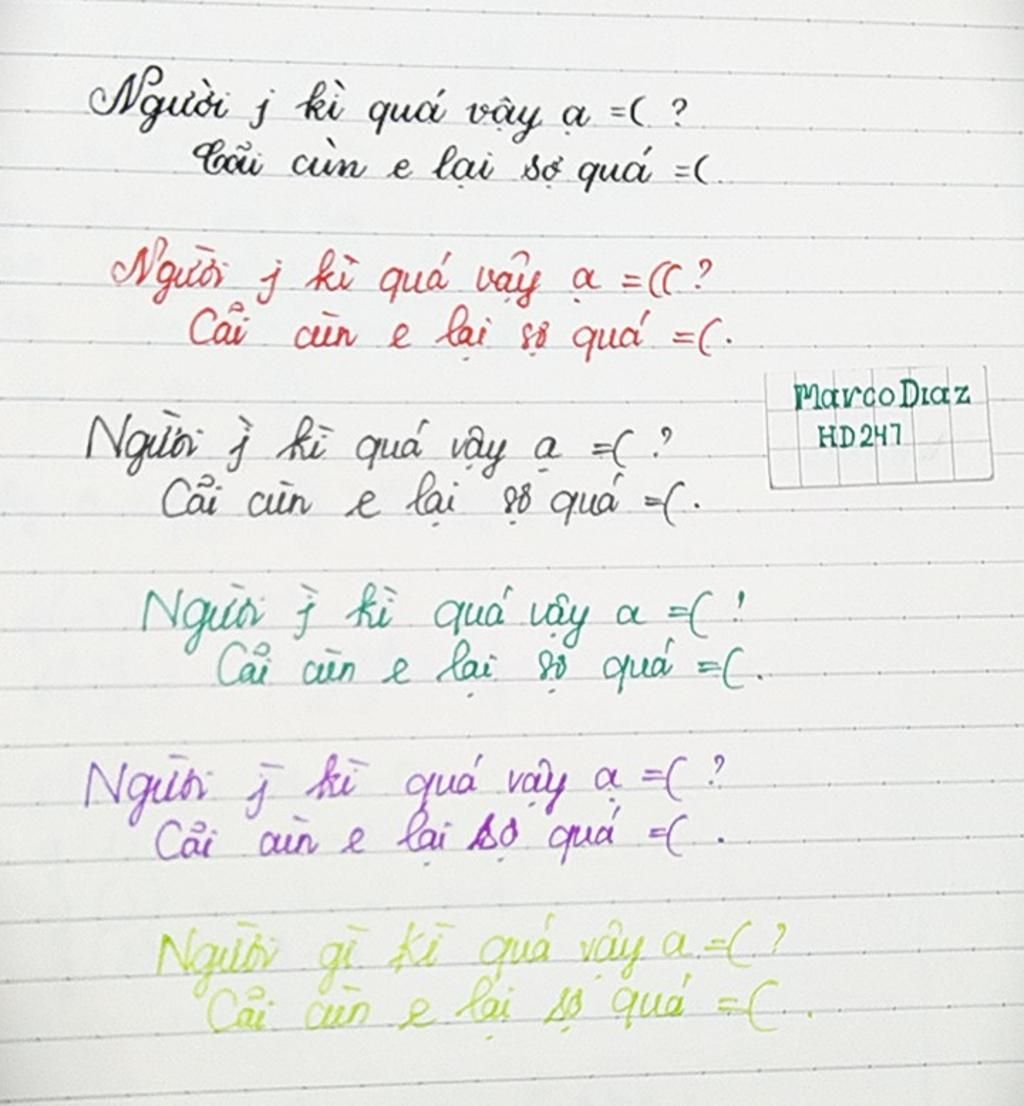 Người j kì quá vậy ạ =( ?
Cãi cùn e lại sợ quá =(.
Người j kì quá vậy ạ =(( ?
Cải cùn e lại sợ quá =(.
Marco Diaz
HD247
Người j̀ kì quá vậy ạ =( ?
Cải cùn e lại sợ quá =(.
Người j̀ kì quá vậy ạ =( !
Cải cùn e lại sợ quá =(.
Người j̀ kì quá vậy ạ =( ?
Cải cùn e lại sợ quá =( .
Người gì kì quá vậy ạ =( ?
Cải cùn e lại sợ quá =( .